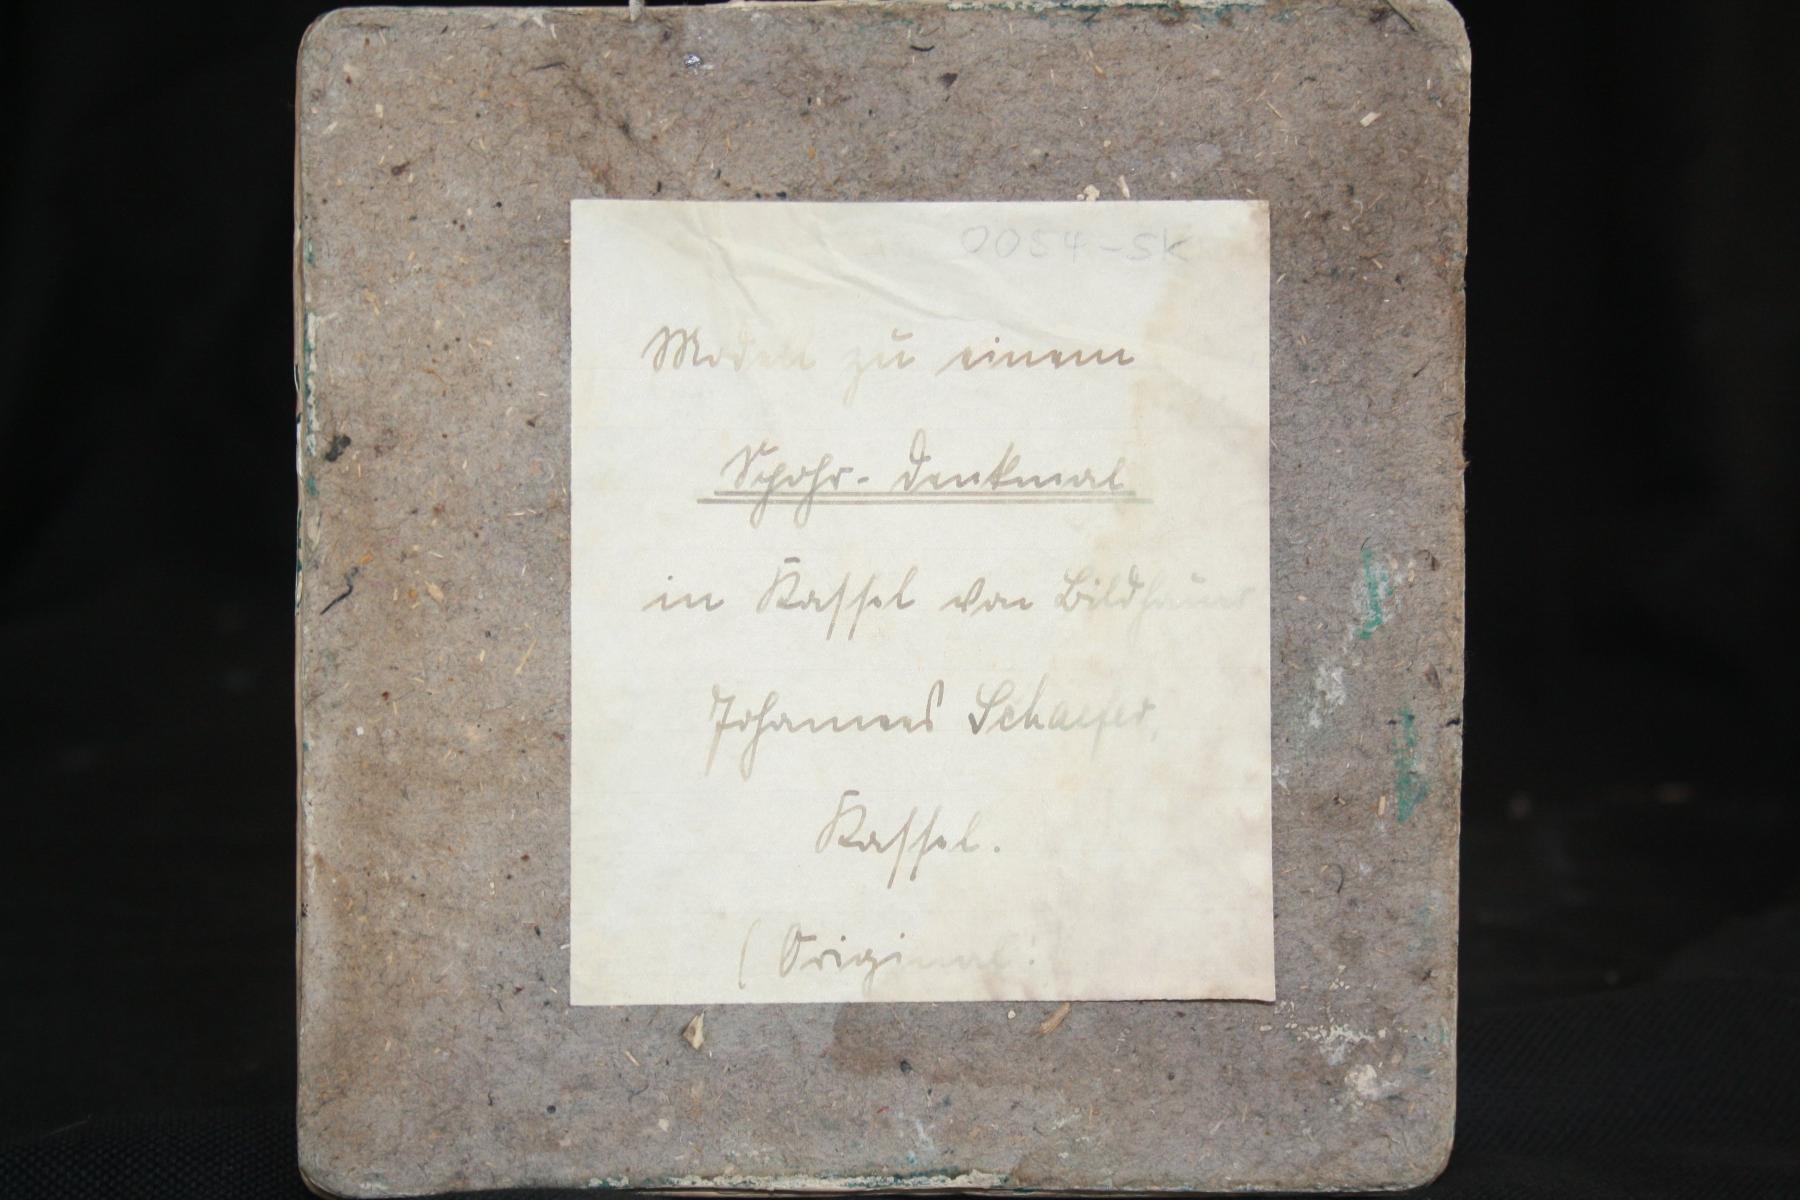 0054-SK
Modell zu einem
Spohr-Denkmal
in Kassel von Bildhauer
Johannes Schaefer,
Kassel.
(Original!